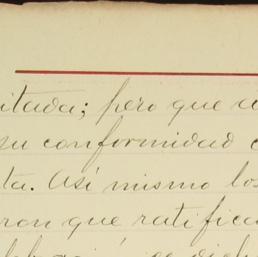 itada; pero que u
su conformidad c
ta. Así mismo los
ron que ratifica